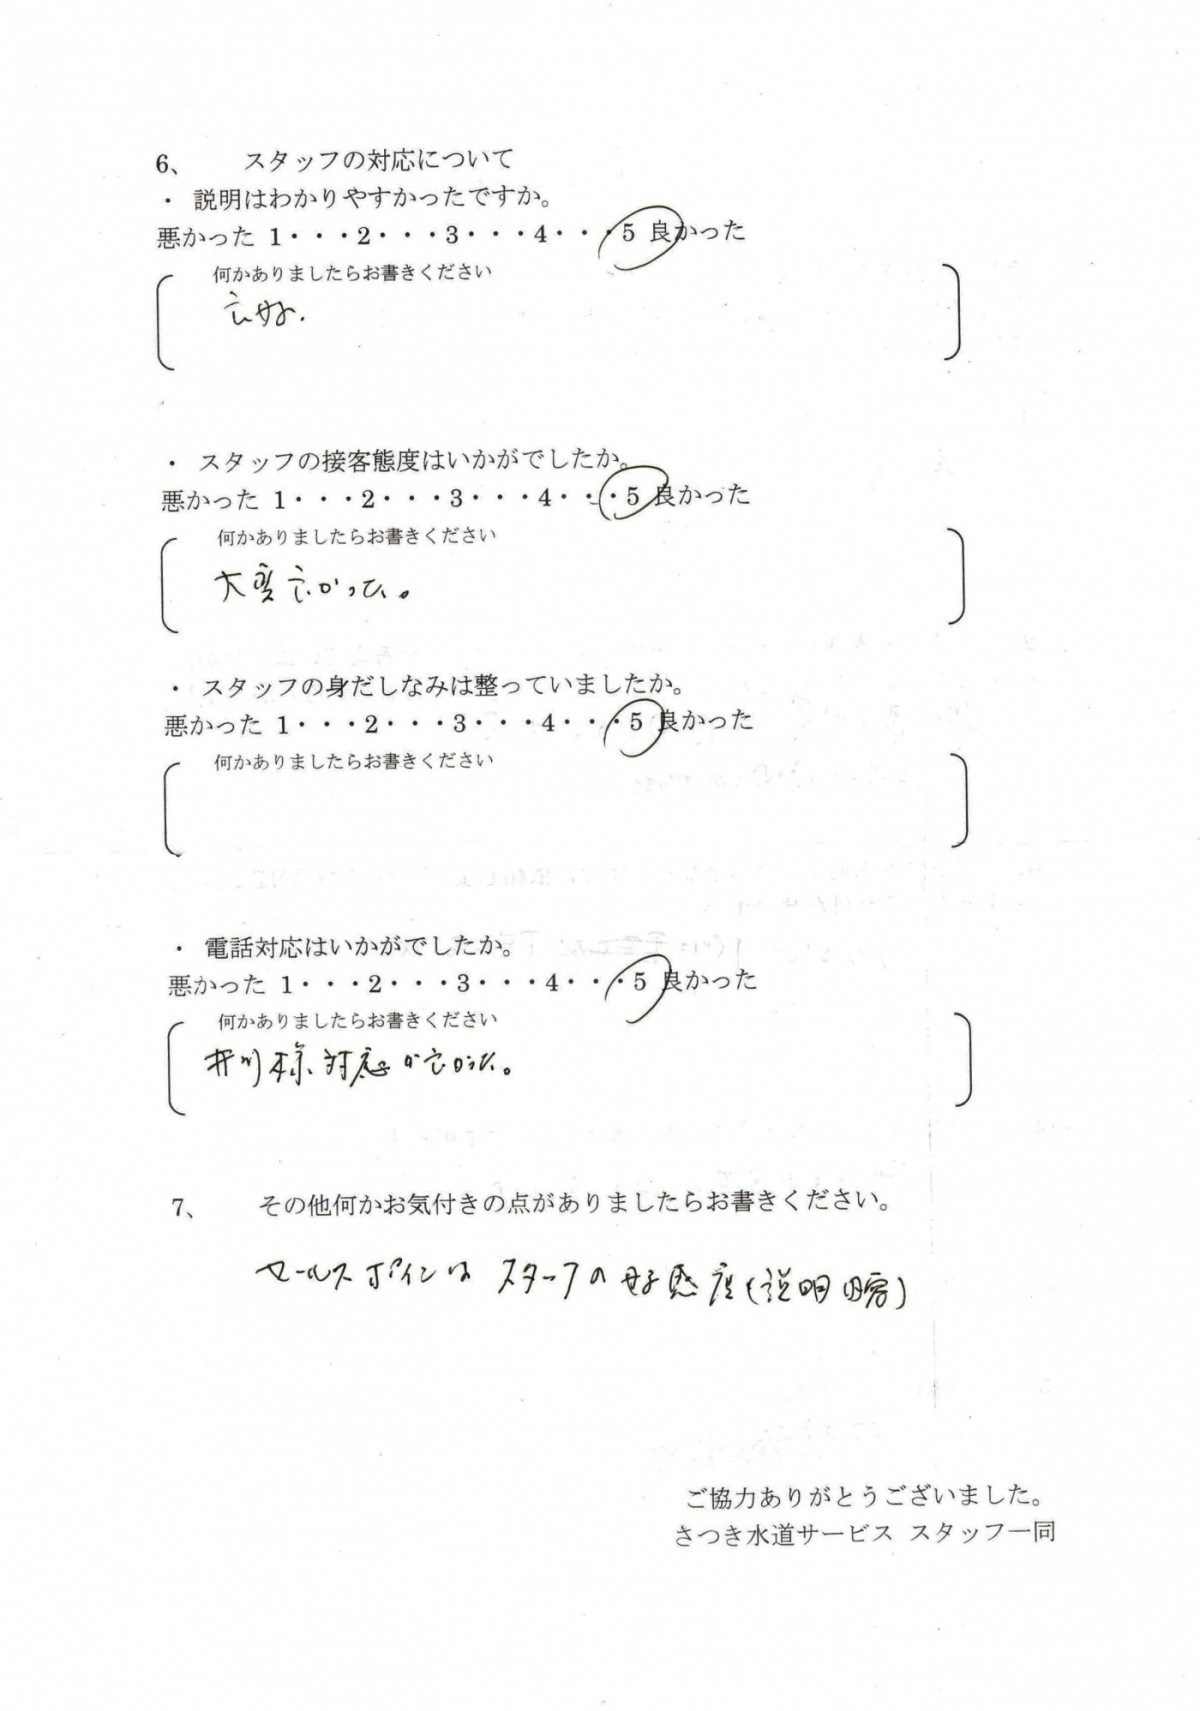 6、 スタッフの対応について
・ 説明はわかりやすかったですか。
悪かった 1・・・2・・・3・・・4・・・5 良かった
何かありましたらお書きください
・ スタッフの接客態度はいかがでしたか。
悪かった 1・・・2・・・3・・・4・・・5 良かった
何かありましたらお書きください
大変良かった。
・ スタッフの身だしなみは整っていましたか。
悪かった 1・・・2・・・3・・・4・・・5 良かった
何かありましたらお書きください
・ 電話対応はいかがでしたか。
悪かった 1・・・2・・・3・・・4・・・5 良かった
何かありましたらお書きください
井川様対応が良かった。
7、 その他何かお気付きの点がありましたらお書きください。
セールスポイントは スタッフの好感度(説明
ご協力ありがとうございました。
さつき水道サービス スタッフ一同